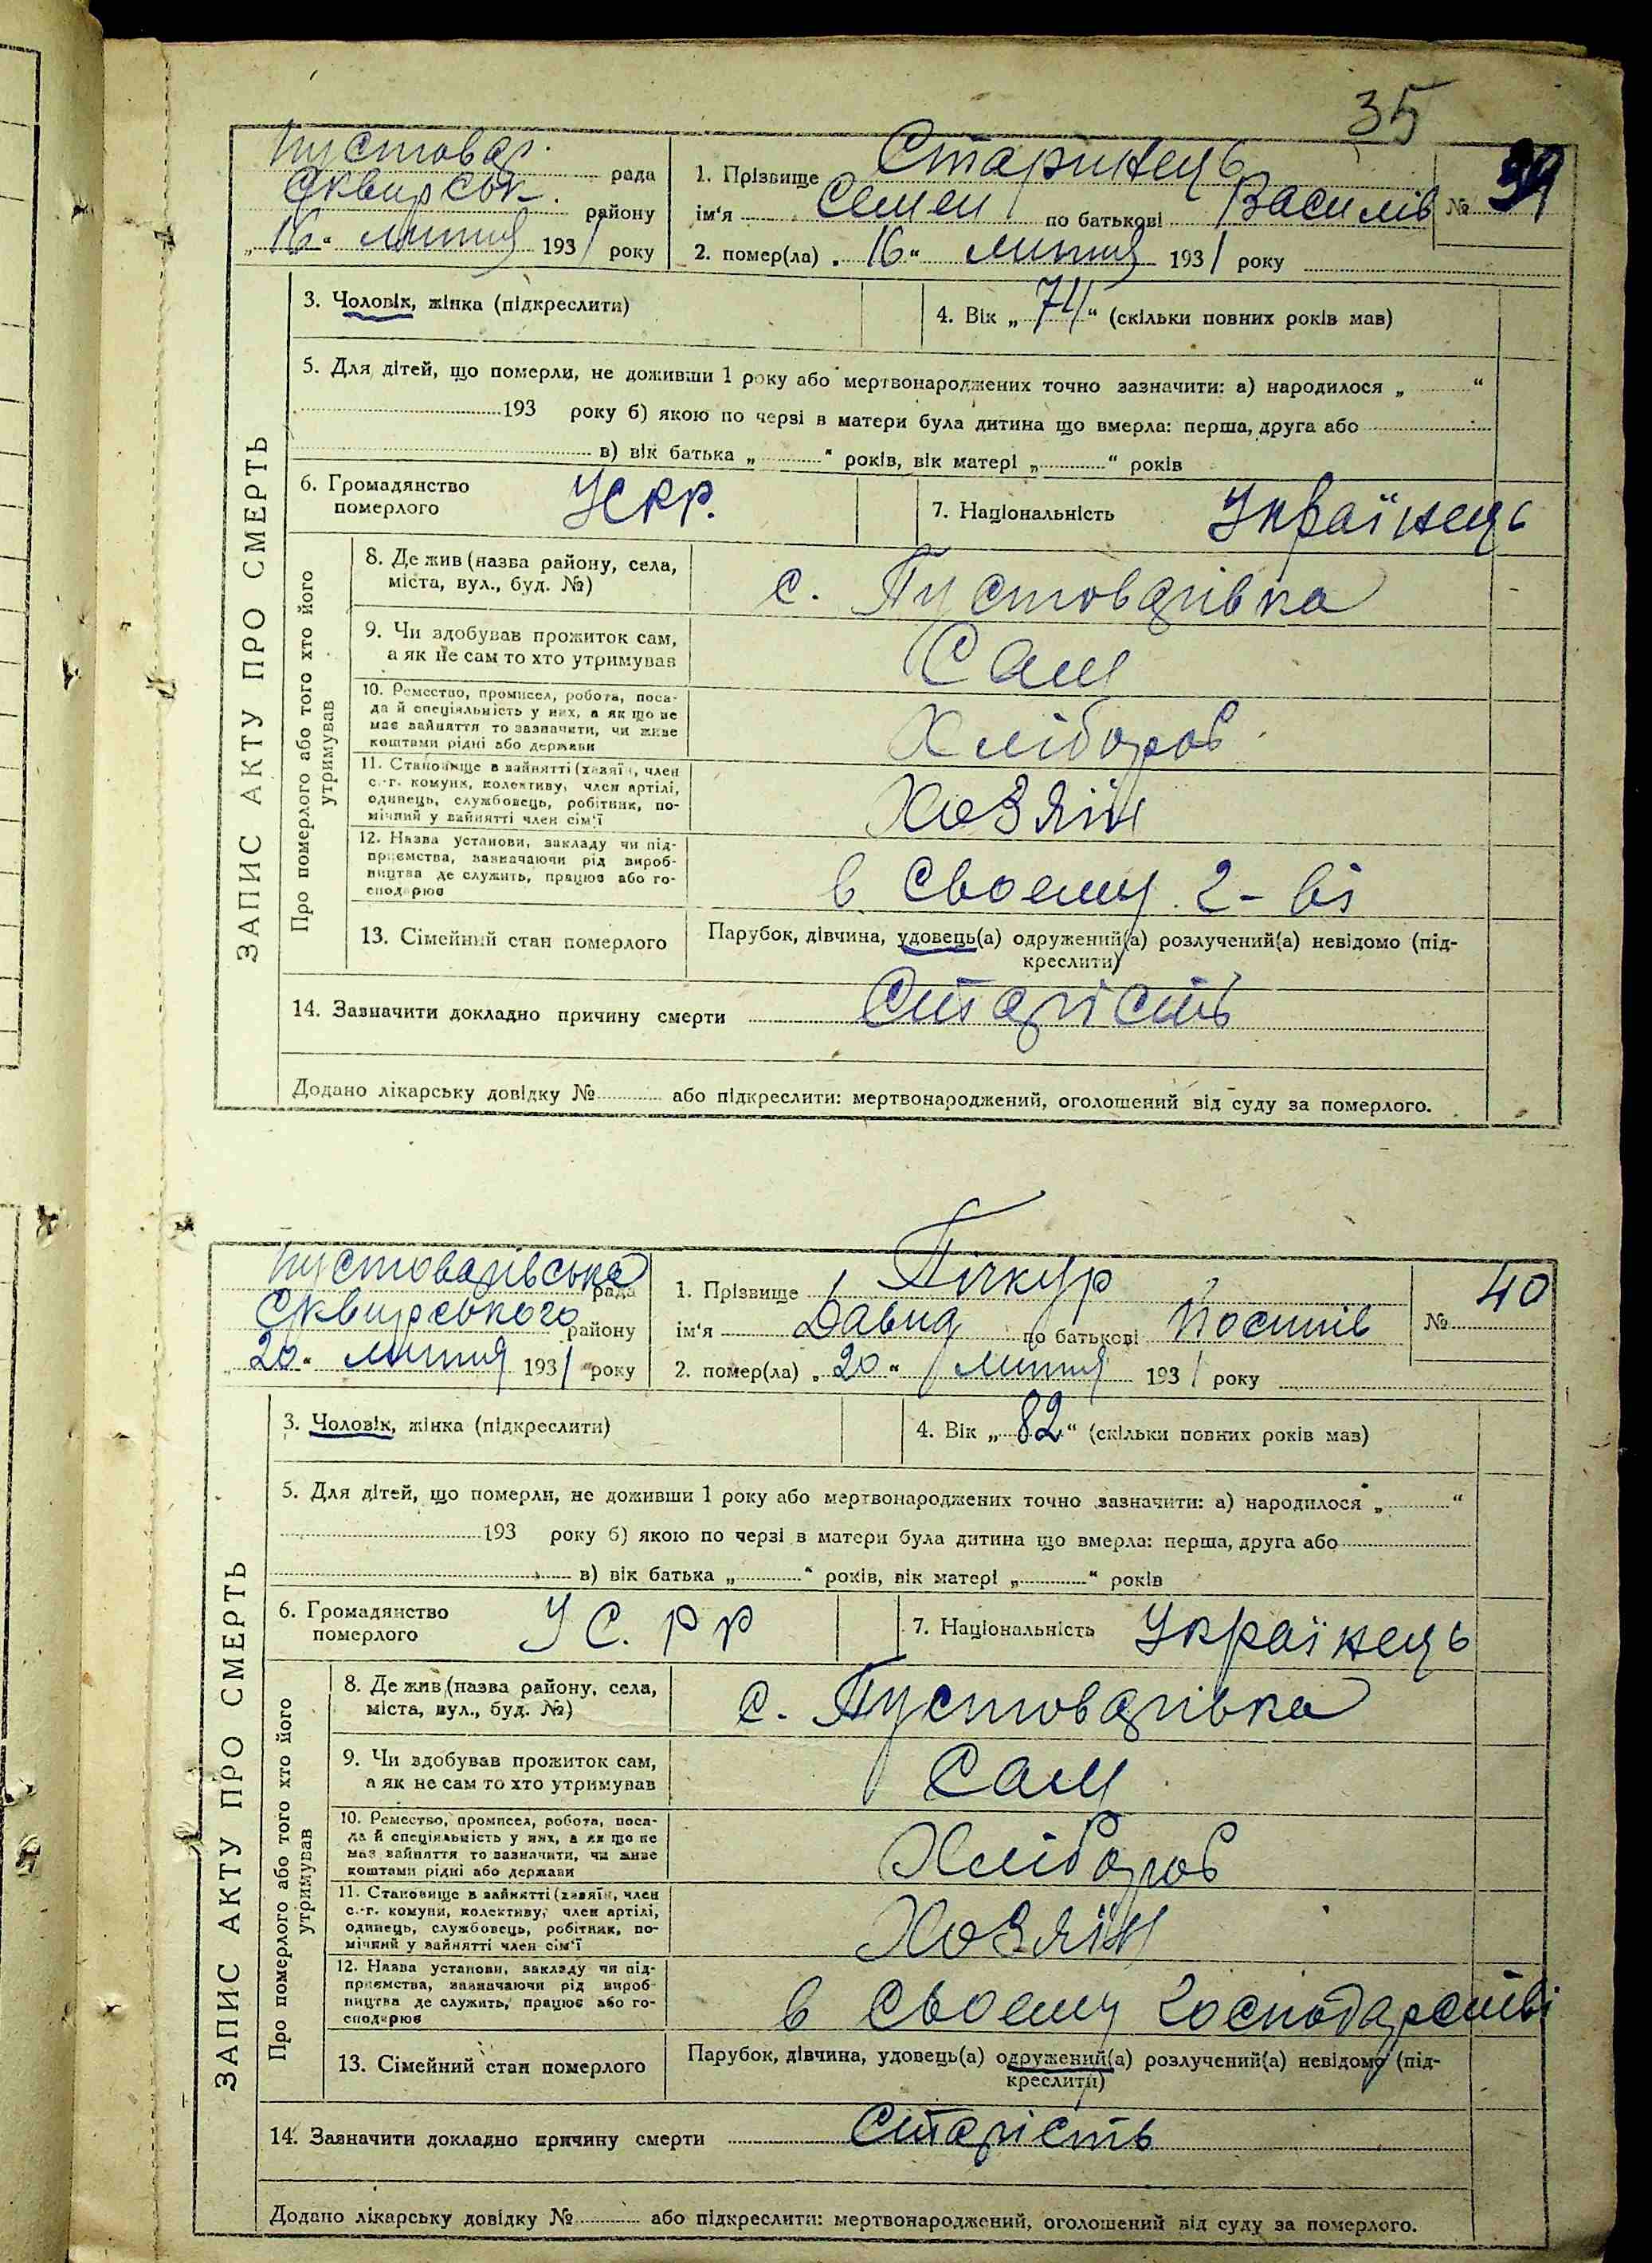 35
Пустовар. рада
Сквирськ. району
„16“ липня 1931 року
1. Прізвище Старинець
ім'я Семен по батькові Василів
№ 39
2. помер(ла) „16“ липня 1931 року
ЗАПИС АКТУ ПРО СМЕРТЬ
3. Чоловік, жінка (підкреслити)
4. Вік „74“ (скільки повних років мав)
5. Для дітей, що померли, не доживши 1 року або мертвонароджених точно зазначити: а) народилося „ “
193 року б) якою по черзі в матери була дитина що вмерла: перша, друга або
в) вік батька „ “ років, вік матері „ “ років
6. Громадянство
померлого
УСРР.
7. Національність Українець
Про померлого або того хто його
утримував
8. Де жив (назва району, села,
міста, вул., буд. №)
с. Пустоварівка
9. Чи здобував прожиток сам,
а як не сам то хто утримував
Сам
10. Ремество, промисел, робота, поса-
да й спеціяльність у них, а як що не
має зайняття то зазначити, чи живе
коштами рідні або держави
Хлібороб
11. Становище в зайнятті (хазяїн, член
с.-г. комуни, колективу, член артілі,
одинець, службовець, робітник, по-
мічний у зайнятті член сім'ї
Хозяїн
12. Назва установи, закладу чи під-
приємства, зазначаючи рід вироб-
ництва де служить, працює або го-
сподарює
в своему г-ві
13. Сімейний стан померлого
Парубок, дівчина, удовець(а) одружений(а) розлучений(а) невідомо (під-
креслити)
14. Зазначити докладно причину смерти Старість
Додано лікарську довідку № або підкреслити: мертвонароджений, оголошений від суду за померлого.
Пустоварівська рада
Сквирського району
„20“ липня 1931 року
1. Прізвище Пічкур
ім'я Давид по батькові
№ 40
2. помер(ла) „20“ липня 1931 року
ЗАПИС АКТУ ПРО СМЕРТЬ
3. Чоловік, жінка (підкреслити)
4. Вік „82“ (скільки повних років мав)
5. Для дітей, що померли, не доживши 1 року або мертвонароджених точно зазначити: а) народилося „ “
193 року б) якою по черзі в матери була дитина що вмерла: перша, друга або
в) вік батька „ “ років, вік матері „ “ років
6. Громадянство
померлого
УС.РР
7. Національність Українець
Про померлого або того хто його
утримував
8. Де жив (назва району, села,
міста, вул., буд. №)
с. Пустоварівка
9. Чи здобував прожиток сам,
а як не сам то хто утримував
Сам
10. Ремество, промисел, робота, поса-
да й спеціяльність у них, а як що не
має зайняття то зазначити, чи живе
коштами рідні або держави
Хлібороб
11. Становище в зайнятті (хазяїн, член
с.-г. комуни, колективу, член артілі,
одинець, службовець, робітник, по-
мічний у зайнятті член сім'ї
Хозяїн
12. Назва установи, закладу чи під-
приємства, зазначаючи рід вироб-
ництва де служить, працює або го-
сподарює
в своему господарстві
13. Сімейний стан померлого
Парубок, дівчина, удовець(а) одружений(а) розлучений(а) невідомо (під-
креслити)
14. Зазначити докладно причину смерти Старість
Додано лікарську довідку № або підкреслити: мертвонароджений, оголошений від суду за померлого.